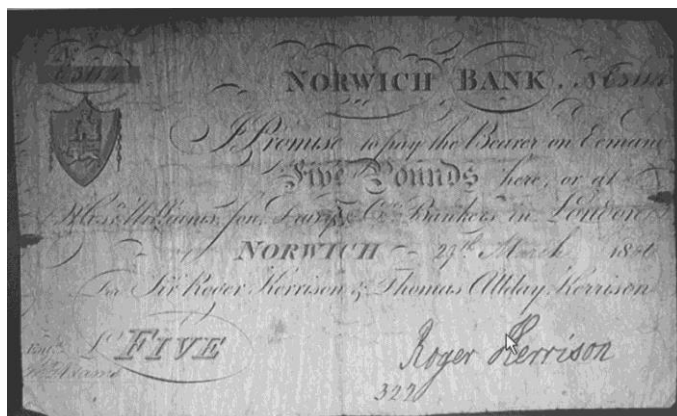 NORWICH BANK
I Promise to pay the Bearer on Demand
Five Pounds here, or at
Williams, Son, & Co. Bankers in London
NORWICH 29th March
For Sir Roger Kerrison & Thomas Allday Kerrison
FIVE
Roger Kerrison